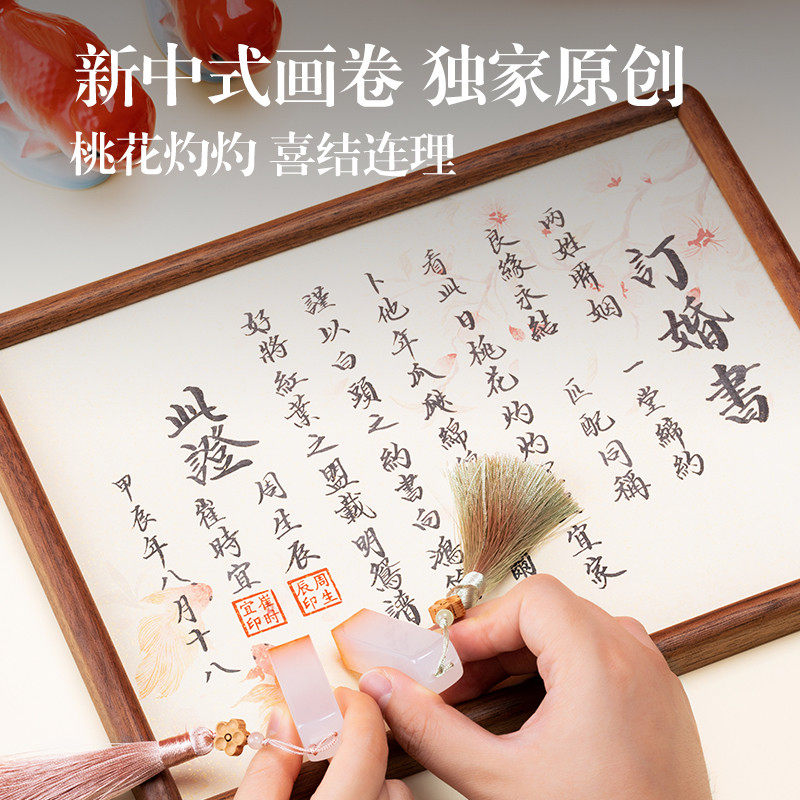 新中式画卷 独家原创
桃花灼灼 喜结连理
訂婚書
两姓聯姻 一堂締約
良緣永結 匹配同稱
看此日桃花灼灼 宜家
卜他年瓜瓞綿 爾
謹以白頭之約書向鴻
好將紅葉之盟載明鴛譜
此證
周生辰
周生辰印
崔時宜
崔時宜印
甲辰年八月十八